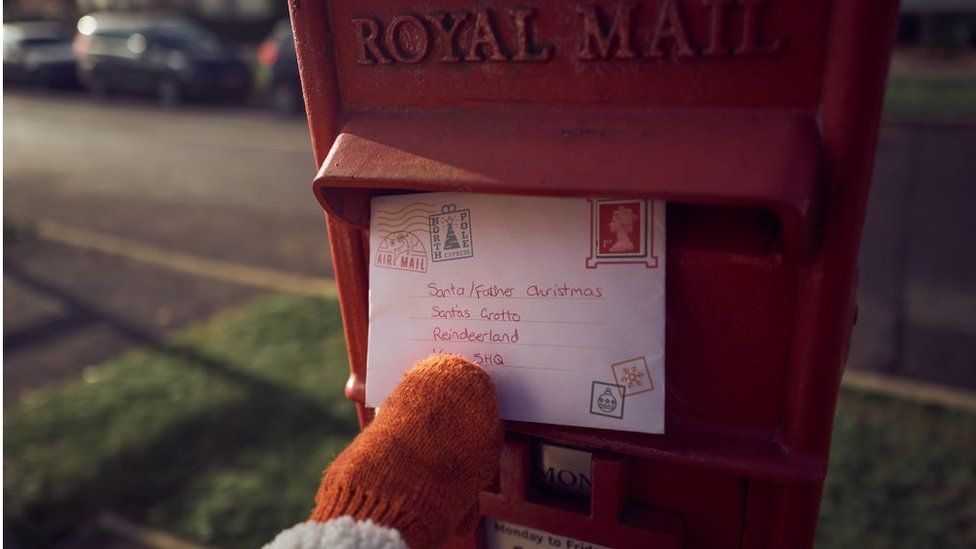 ROYAL MAIL
AIR MAIL
NORTH POLE
EXPRESS
1ST
Santa/Father Christmas
Santa's Grotto
Reindeerland
5HQ
MON
Monday to